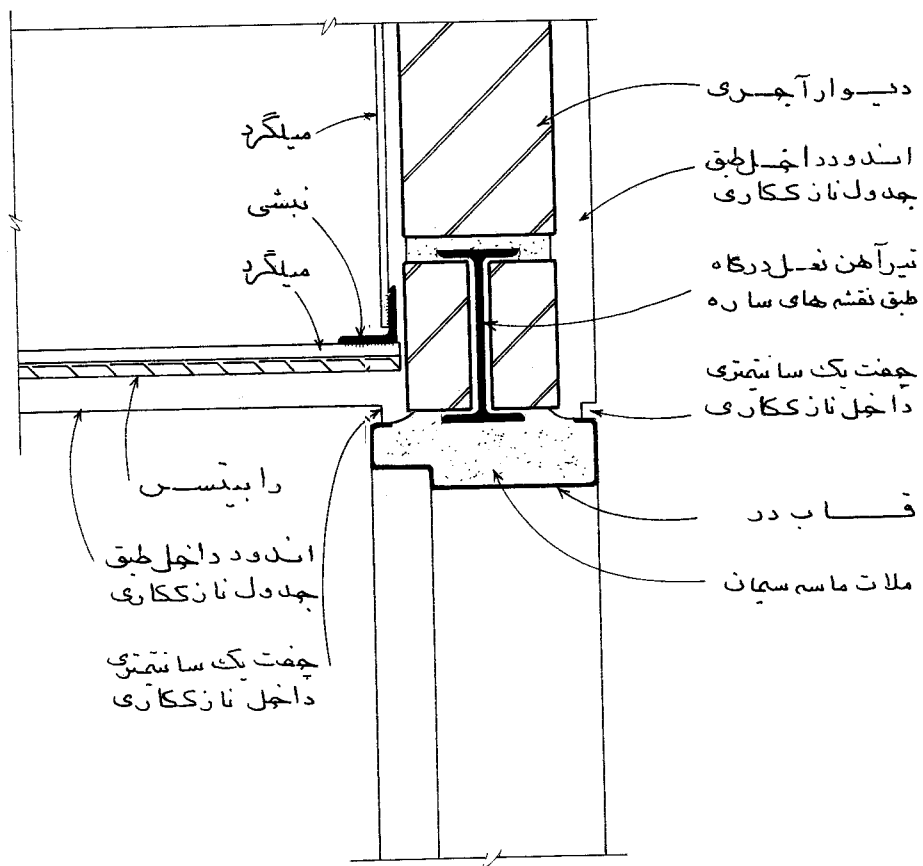 دیوار آجری
اندود داخل طبق
جدول نازک‌کاری
تیرآهن نعل درگاه
طبق نقشه های سازه
چفت یک سانتیمتری
داخل نازک‌کاری
قاب در
ملات ماسه سیمان
میلگرد
نبشی
میلگرد
رابیتس
اندود داخل طبق
جدول نازک‌کاری
چفت یک سانتیمتری
داخل نازک‌کاری